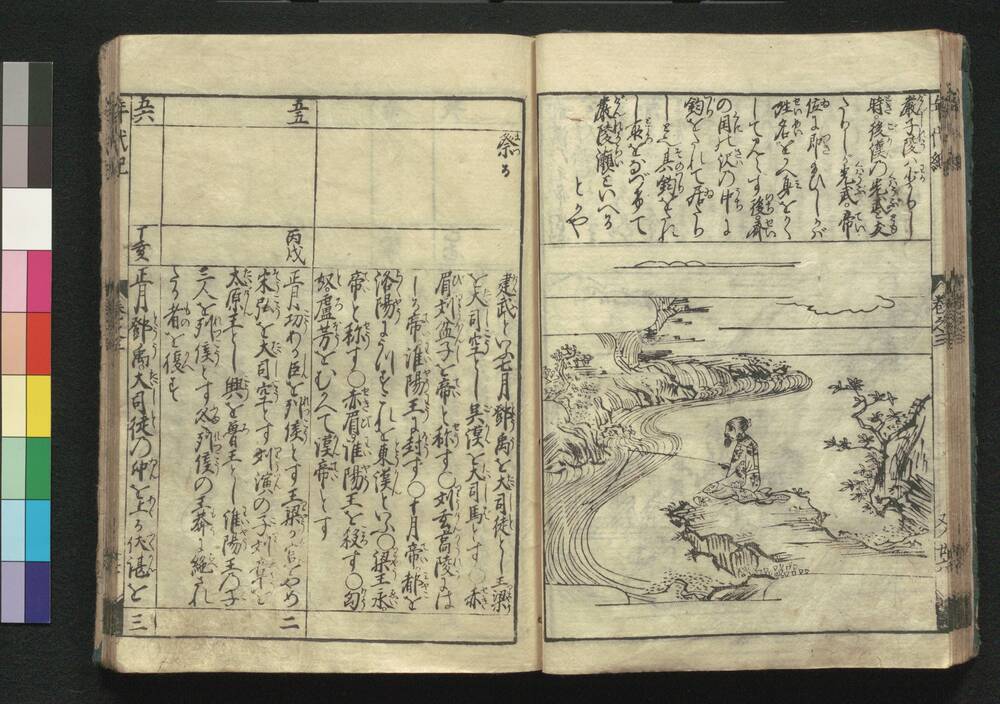 厳子陵ハ少うして
時後漢の光武と友
たりしが光武帝
位に即たまひしかバ
姓名をかへ身をかく
してみへず後斉
の国の沢の中に
釣をたれて居たり
しとぞ其釣をたれ
し所をなづけて
厳陵瀬といへる
とかや
巻之三
祭る
建武といふ七月鄧禹を大司徒とし王梁
を大司空とし呉漢を大司馬とす〇赤
眉劉盆子を帝と称す〇劉玄高陵に
しる帝淮陽王に封ず〇十月帝都を
洛陽にうつすこれを東漢といふ〇梁王永
帝と称す〇赤眉淮陽王を殺す〇匈
奴盧芳をむかへて漢帝とす
五五
丙戌
正月功ある臣を列侯とす王梁が官をやめ
宋弘を大司空とす劉演の子劉章を
太原王とし興を魯王とし淮陽王の子
三人を列侯とす
たる者を復す
二
五六
丁亥
正月鄧禹大司徒の印を上る伏湛を
三
年代記
巻之三